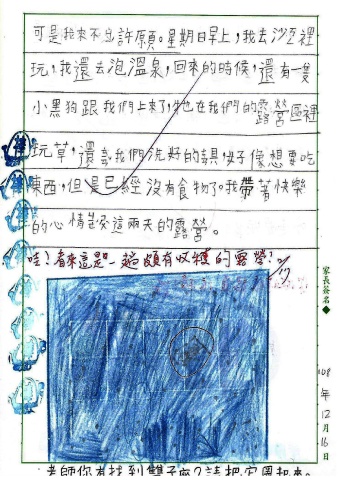 可是我來不及許願。星期日早上，我去沙坑裡
玩，我還去泡溫泉，回來的時候，還有一隻
小黑狗跟我們上來了，牠在我們的露營區裡
玩草，還我們洗好的具，好像想要吃
東西，但是已經沒有食物了。我帶著快樂
的心情結束這兩天的露營。
哇！看來這是一趟頗有收穫的露營！
家長簽名
108年12月16日
老師你有找到雙子座？請把它圈起來。